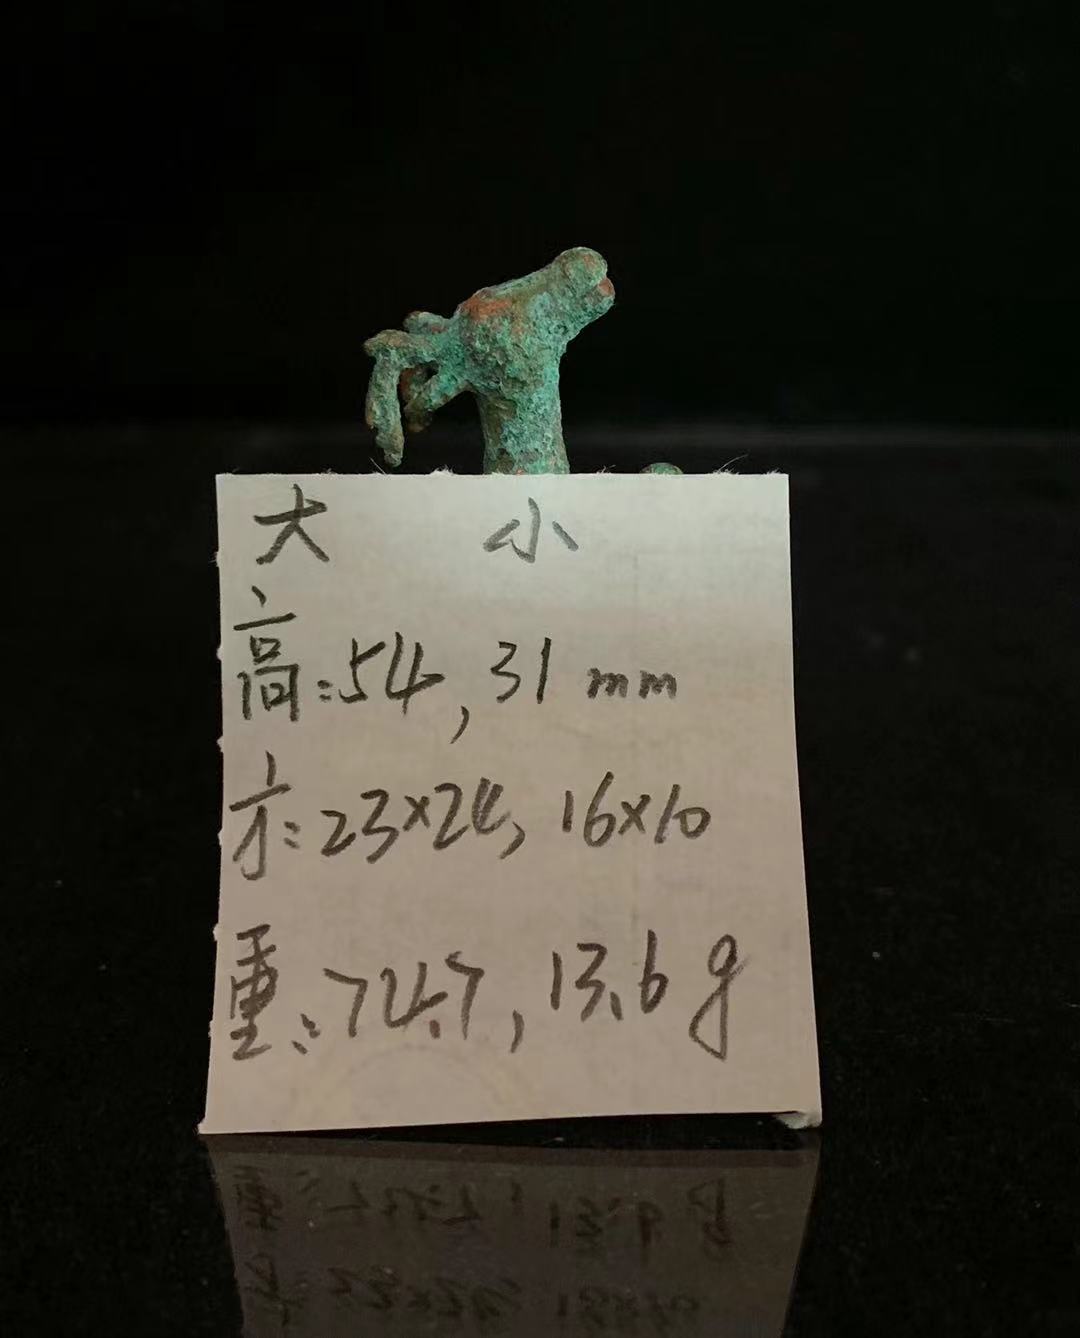 大 小
高:54, 31 mm
方:23×24, 16×10
重:74.7, 13.6 g